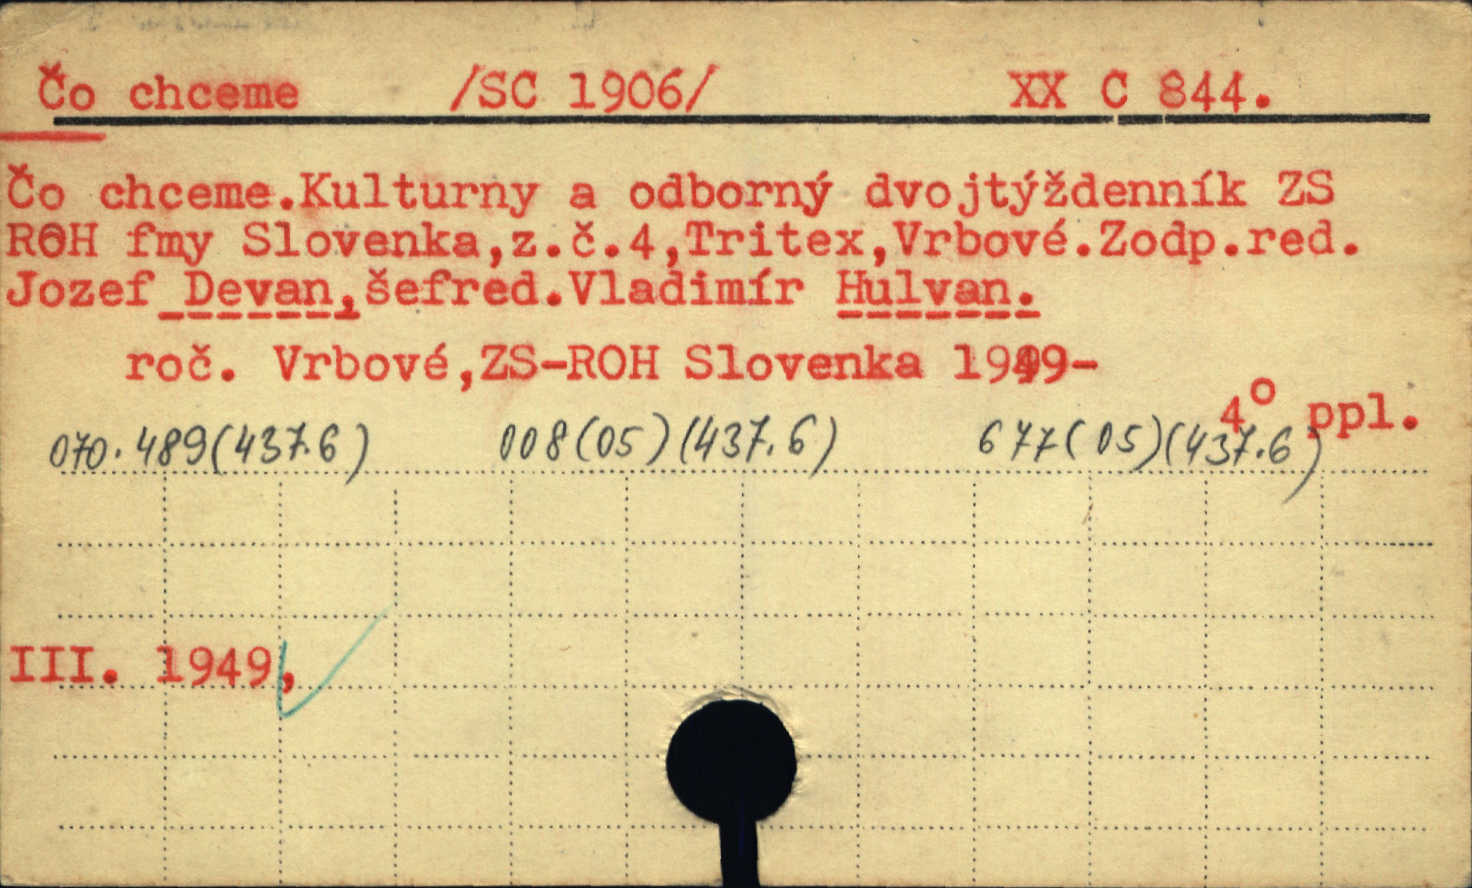 Čo chceme /SC 1906/ XX C 844.
Čo chceme.Kulturny a odborný dvojtýždenník ZS
ROH fmy Slovenka,z.č.4,Tritex,Vrbové.Zodp.red.
Jozef Devan,šefred.Vladimír Hulvan.
roč. Vrbové,ZS-ROH Slovenka 1949-
4° ppl.
070.489(437.6) 008(05)(437.6) 677(05)(437.6)
III. 1949,